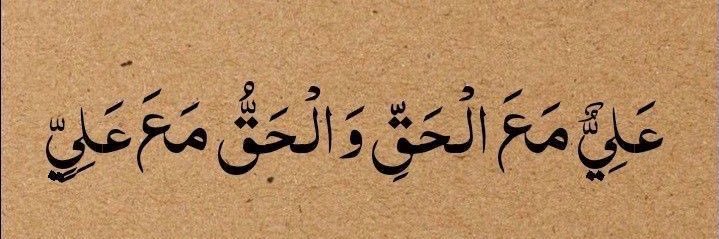 عَلِيٌّ مَعَ الْحَقِّ وَ الْحَقُّ مَعَ عَلِيٍّ